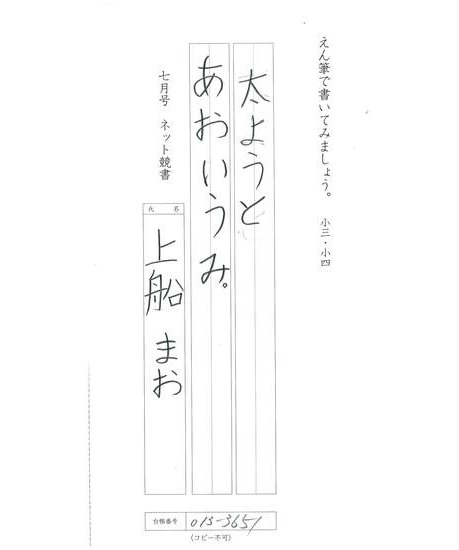 えん筆で書いてみましょう。 小三・小四
太ようと
あおいうみ。
七月号 ネット競書
氏名
上船 まお
台帳番号 013-3651
(コピー不可)